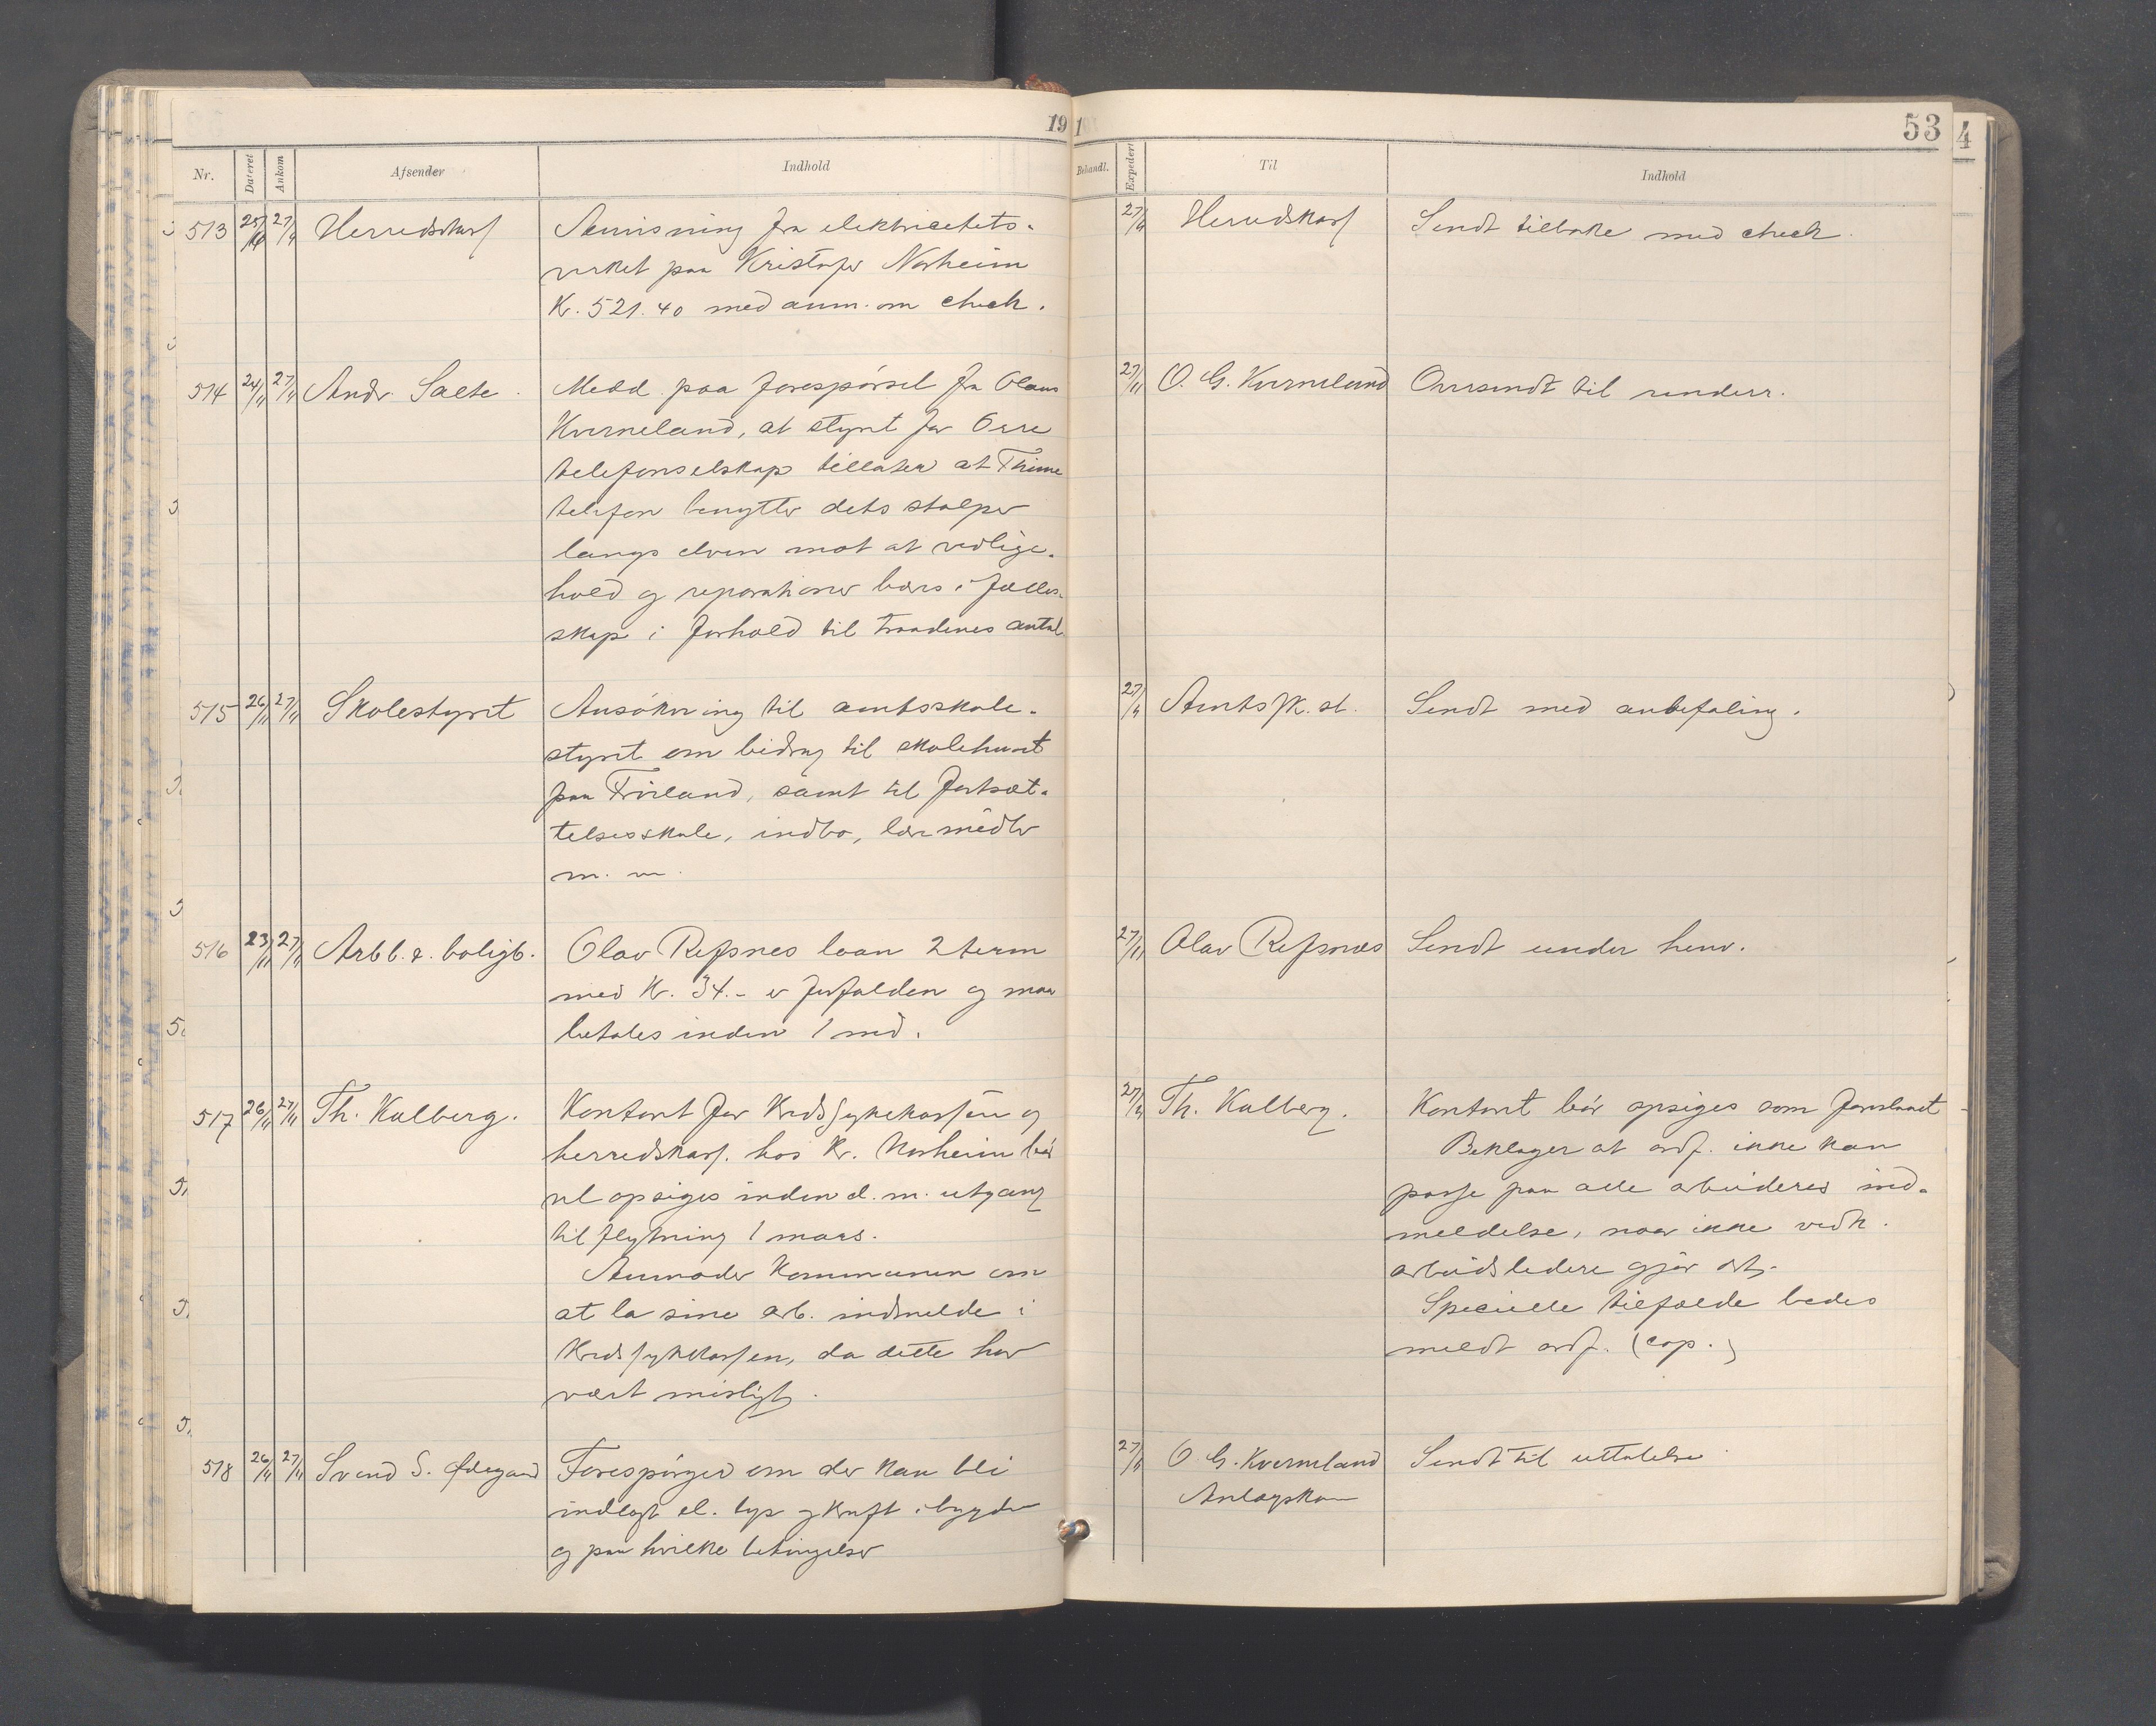 19
Nr. Dateret Ankom Afsender Indhold
513 25/11 27/11 Herredskass Anvisning fra elektricitets-
verket paa Kristofer Norheim
Kr. 521.40 med anm. om check.
514 24/11 27/11 Andr. Salte. Medd. paa forespörsel fra Olaus
Kverneland, at styret for Orre
telefonselskap tillater at Thime
telefon benytter dets stolper
langs elven mot at vedlige-
hold og reparationer bæres i fælles-
skap i forhold til traadenes antal
515 26/11 27/11 Skolestyret Ansökning til amtsskole-
styret om bidrag til skolehuset
paa Fröiland, samt til fortsæt-
telsesskole, indbo, læremidler
m. m.
516 23/11 27/11 Arbb. & boligb. Olav Refsnes laan 2 term
med Kr. 34.- er forfalden og maa
betales inden 1 md.
517 26/11 27/11 Th. Kalberg. Kontoret for Kredssykekassen og
herredskass. hos Kr. Norheim bör
vel opsiges inden d. m. utgang
til flytning 1 mars.
Anmoder Kommunen om
at la sine arb. indmelde i
Kredssykekassen, da dette har
vært misligt.
518 26/11 27/11 Svend S. Ødegaard Forespörger om der kan bli
indlagt el. lys og kraft i bygden
og paa hvilke betingelser
1 53 4
Behandl. Expedert Til Indhold
27/11 Herredskass Sendt tilbake med check.
27/11 O. G. Kverneland Oversendt til underr.
27/11 Amtssk. st. Sendt med anbefaling.
27/11 Olav Refsnæs Sendt under henv.
27/11 Th. Kalberg. Kontoret bör opsiges som foreslaaet
Beklager at ordf. ikke kan
passe paa alle arbeideres ind-
meldelse, naar ikke vedk.
arbeidsledere gjör det.
Specielle tilfælde bedes
meldt ordf. (cop.)
27/11 O. G. Kverneland Sendt til uttalelse
Anlægskom